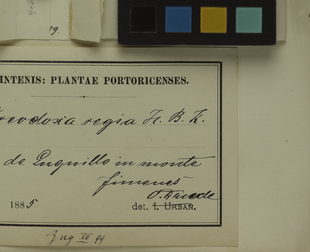 79.
SINTENIS: PLANTAE PORTORICENSES.
Oreodoxa regia H. B. K.
de Luquillo in monte
Jimenes
1885
det. I. URBAN.